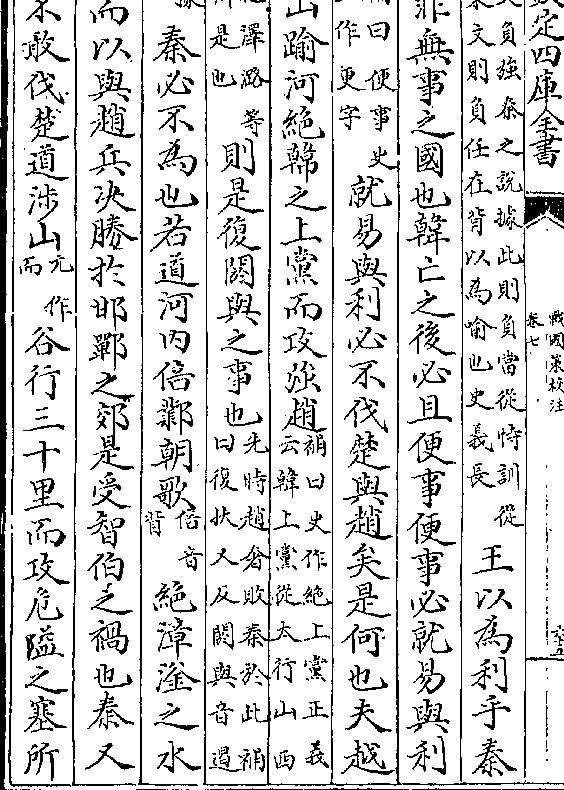 定四庫全書
戰國策校注
卷七
負強秦之說據此則負當從恃訓從
文則負任在背以為喻也史義長
王以為利乎秦
非無事之國也韓亡之後必且便事便事必就易與利
曰便事史
作更字
就易與利必不伐楚與趙矣是何也夫越
山踰河絶韓之上黨而攻强趙
補曰史作絶上黨正義
云韓上黨從太行山西
澤潞等
是也
則是復閼與之事也
先時趙奢敗秦於此補
曰復扶又反閼與音遏
秦必不為也若道河内倍鄴朝歌
倍音
背
絶漳滏之水
而以與趙兵决勝於邯鄲之郊是受智伯之禍也秦又
不敢伐楚道涉山
元作
而
谷行三十里而攻危隘之塞所